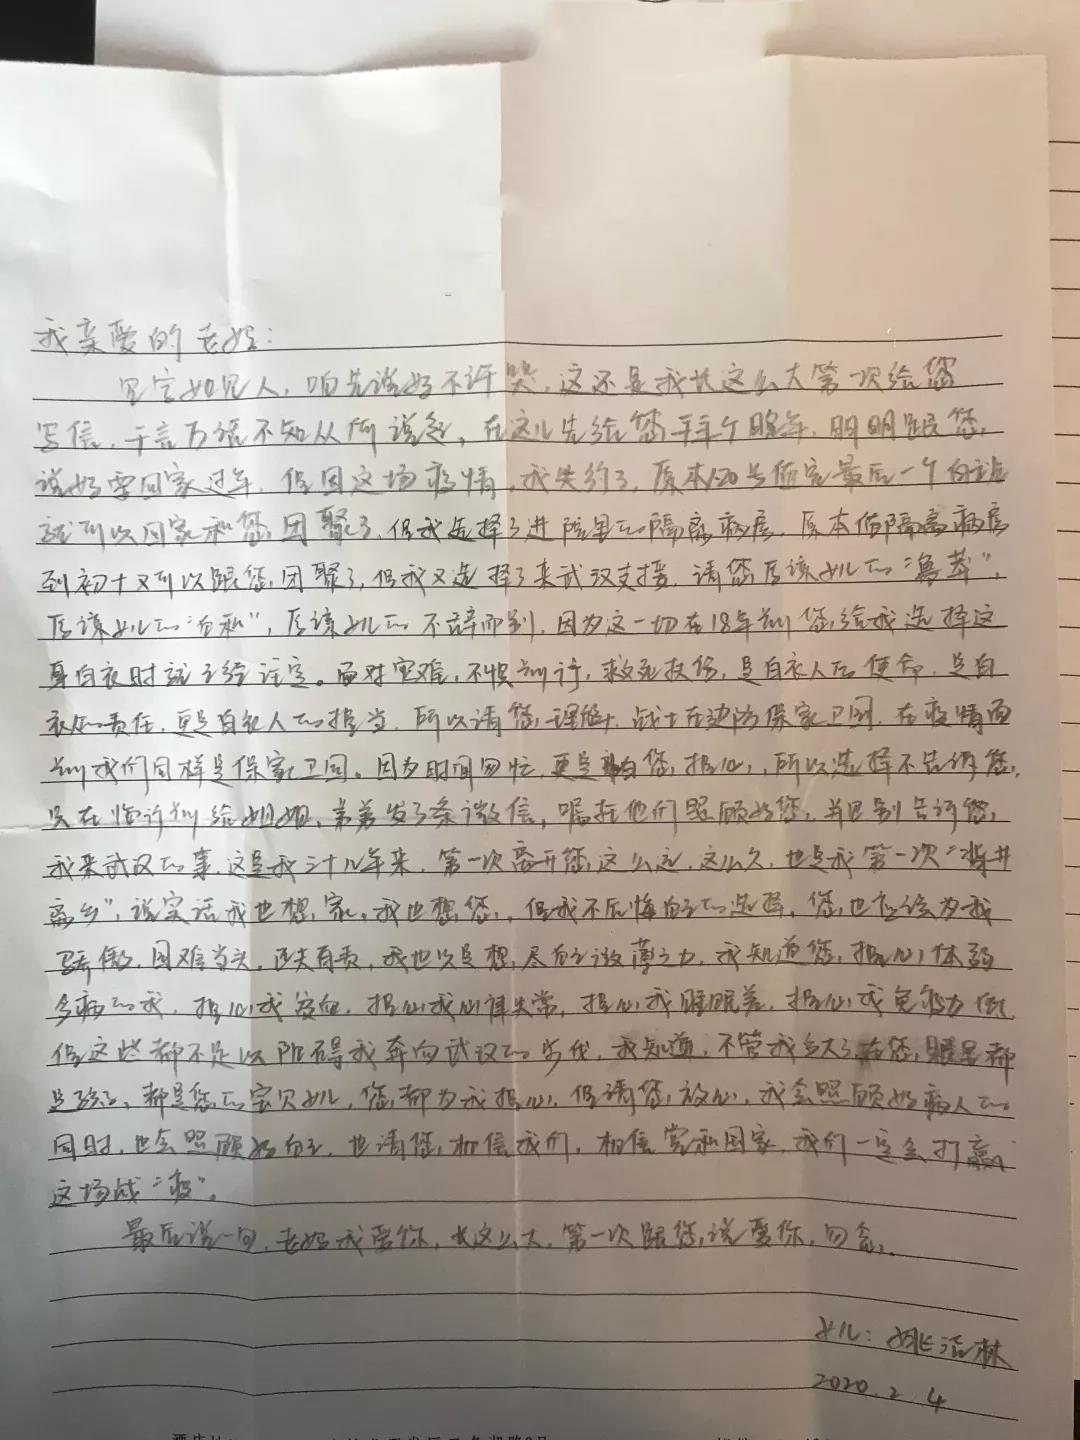 我亲爱的老妈:
见字如见人，咱先说好不许哭，这还是我长这么大第一次给您
写信，千言万语不知从何说起，在这儿先给您拜个晚年，明明跟您
说好要回家过年，但因这场疫情，我失约了，原本1.20号值完最后一个白班
就可以回家和您团聚了，但我选择了进院里的隔离病房，原本值隔离病房
到初十又可以跟您团聚了，但我又选择了来武汉支援，请您原谅女儿的“鲁莽”，
原谅女儿的“自私”，原谅女儿的不辞而别，因为这一切在18年前您给我选择这
身白衣时就已经注定。面对灾难，不惧前行，救死扶伤，是白衣人的使命，是白
衣的责任，更是白衣人的担当，所以请您理解，战士在边防保家卫国，在疫情面
前我们同样是保家卫国。因为时间匆忙，更是怕您担心，所以选择不告诉您，
只在临行前给姐姐、弟弟发了条微信，嘱托他们照顾好您，并且别告诉您，
我来武汉的事，这是我三十几年来，第一次离开您这么远，这么久，也是我第一次“背井
离乡”，说实话我也想家，我也想您，但我不后悔自己的选择，您也应该为我
骄傲，国难当头，匹夫有责，我也只是想尽自己微薄之力，我知道您担心体弱
多病的我，担心我贫血，担心我心律失常，担心我睡眠差，担心我免疫力低，
但这些都不足以阻碍我奔向武汉的步伐，我知道，不管我多大了在您眼里都
是孩子、都是您的宝贝女儿，您都为我担心，但请您放心，我会照顾好病人的
同时，也会照顾好自己，也请您相信我们，相信党和国家，我们一定会打赢
这场战“疫”。
最后说一句，老妈我爱你，长这么大，第一次跟您说爱你，勿念。
女儿：姚洁林
2020.2.4